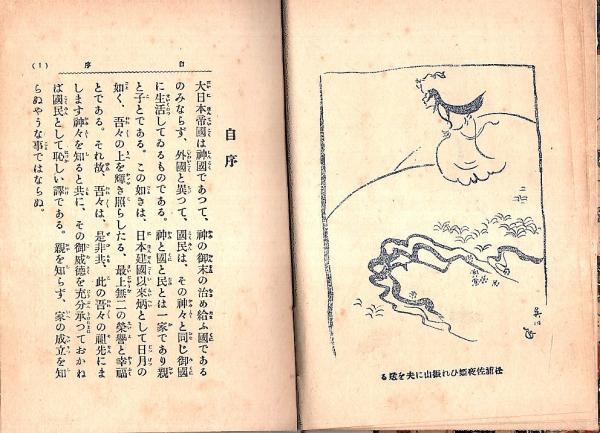 松浦佐夜姫ひれ振山に夫を送る
自序
(1)
自序
大日本帝國は神國であつて、神の御末の治め給ふ國である
のみならず、外國と異つて、國民は、その神々と同じ御國
に生活してゐるものである。神と國と民とは一家であり親
と子とである。この如きは、日本建國以來炳として日月の
如く、吾々の上を輝き照らしたる、最上無二の榮譽と幸福
とである。それ故、吾々は、是非共、此の吾々の祖先にま
します神々を知ると共に、その御威德を充分承つておかね
ば國民として恥しい譯である。親を知らず、家の成立を知
らぬやうな事ではならぬ。